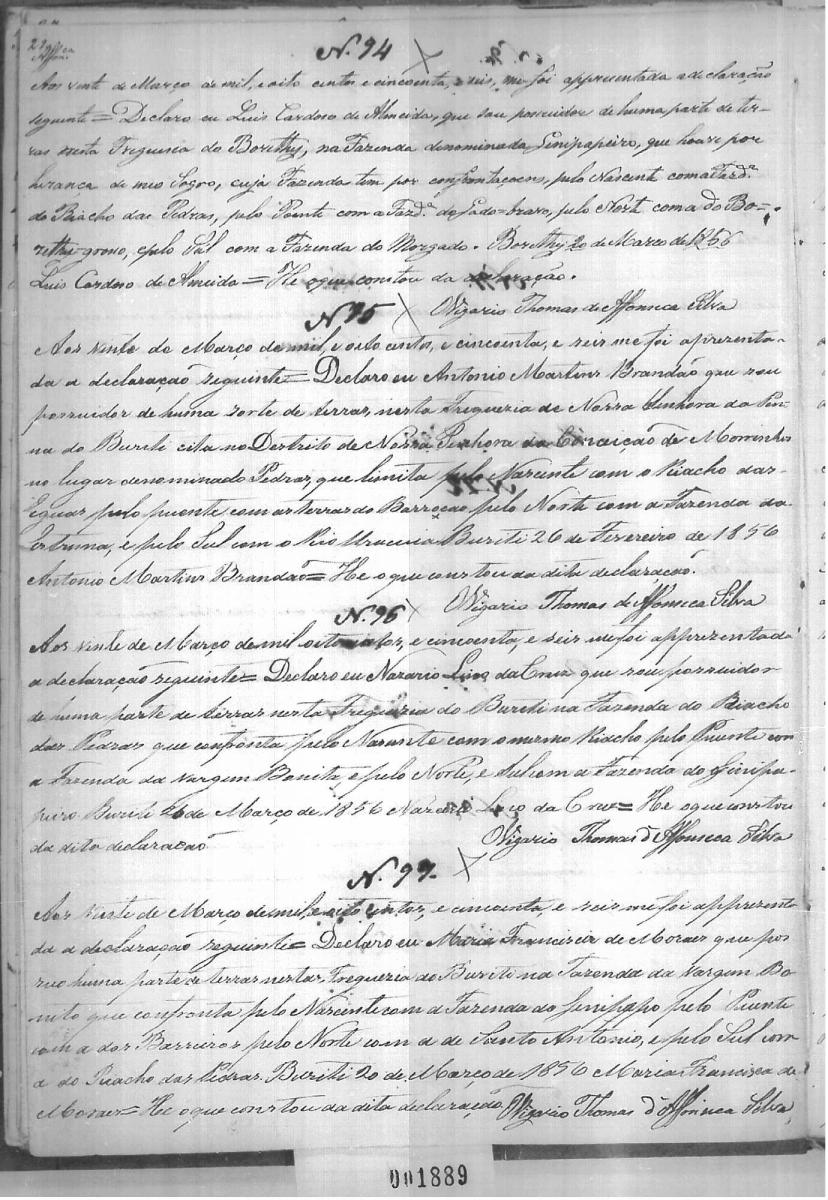 N. 94
Aos vinte de Março de mil, e oito centos e cincoenta, e seis, me foi appresentada a declaração
seguinte = Declaro eu Luis Cardoso de Almeida, que sou possuidor de huma parte de ter-
ras nesta Freguesia do Borethy, na Fazenda denominada Genipapeiro, que houve por
herança de meo Sogro, cuja Fazenda tem por confrontaçoens, pelo Nascente com a Fazdª
do Riacho das Pedras, pelo Poente com a Fazdª do Gado-bravo, pelo Norte com a do Bo=
rethy-grosso, e pelo Sul com a Fazenda do Morgado. Borethy 20 de Março de 1856
Luis Cardoso de Almeida = He o que constou da declaração.
N 95 O Vigario Thomas de Affonseca Silva
Aos vinte de Março de mil, e oito centos, e cincoenta, e seis me foi aprezenta-
da a declaração seguinte = Declaro eu Antonio Martins Brandão que sou
possuidor de huma sorte de terras, nesta Freguezia de Nossa Senhora da Pen-
na do Buriti cita no Destrito de Nossa Senhora da Conceição de Morrinhos
no lugar denominado Pedras, que limita pelo Nascente com o Riacho das
Egoas, pelo puente com as terras do Barrocao pelo Norte com a Fazenda da
Extrema, e pelo Sul com o Rio Urucuia Buriti 26 de Fevereiro de 1856
Antonio Martins Brandão = He o que constou da dita declaração.
N. 96 O Vigario Thomas de Affonseca Silva
Aos vinte de Março de mil oito centos, e cincoenta, e seis me foi apprezentada
a declaração seguinte = Declaro eu Nazario da Cruz que sou possuidor
de huma parte de terras nesta Freguezia do Buriti na Fazenda do Riacho
das Pedras que confronta pelo Nascente com o mesmo Riacho pelo Puente com
a Fazenda da Vargem Bonita, e pelo Norte, e Sul com a Fazenda do Genipa-
peiro Buriti de Março de 1856 Nazario da Cruz = He o que constou
da dita declaração O Vigario Thomas d'Affonseca Silva
N. 97.
Aos vinte de Março de mil, e oito centos, e cincoenta, e seis me foi apprezenta
da a declaração seguinte = Declaro eu Maria Francisca de Moraes que pos
suo huma parte de terras nestas Freguezia do Buriti na Fazenda da Vargem Bo
nita que confronta pelo Nascente com a Fazenda do Genipapo pelo Puente
com a dos Barreiros pelo Norte com a de Santo Antonio, e pelo Sul com
a do Riacho das Pedras. Buriti 20 de Março de 1856 Maria Francisca de
Moraes = He o que constou da dita declaração. O Vigario Thomas d'Affonseca Silva
001889